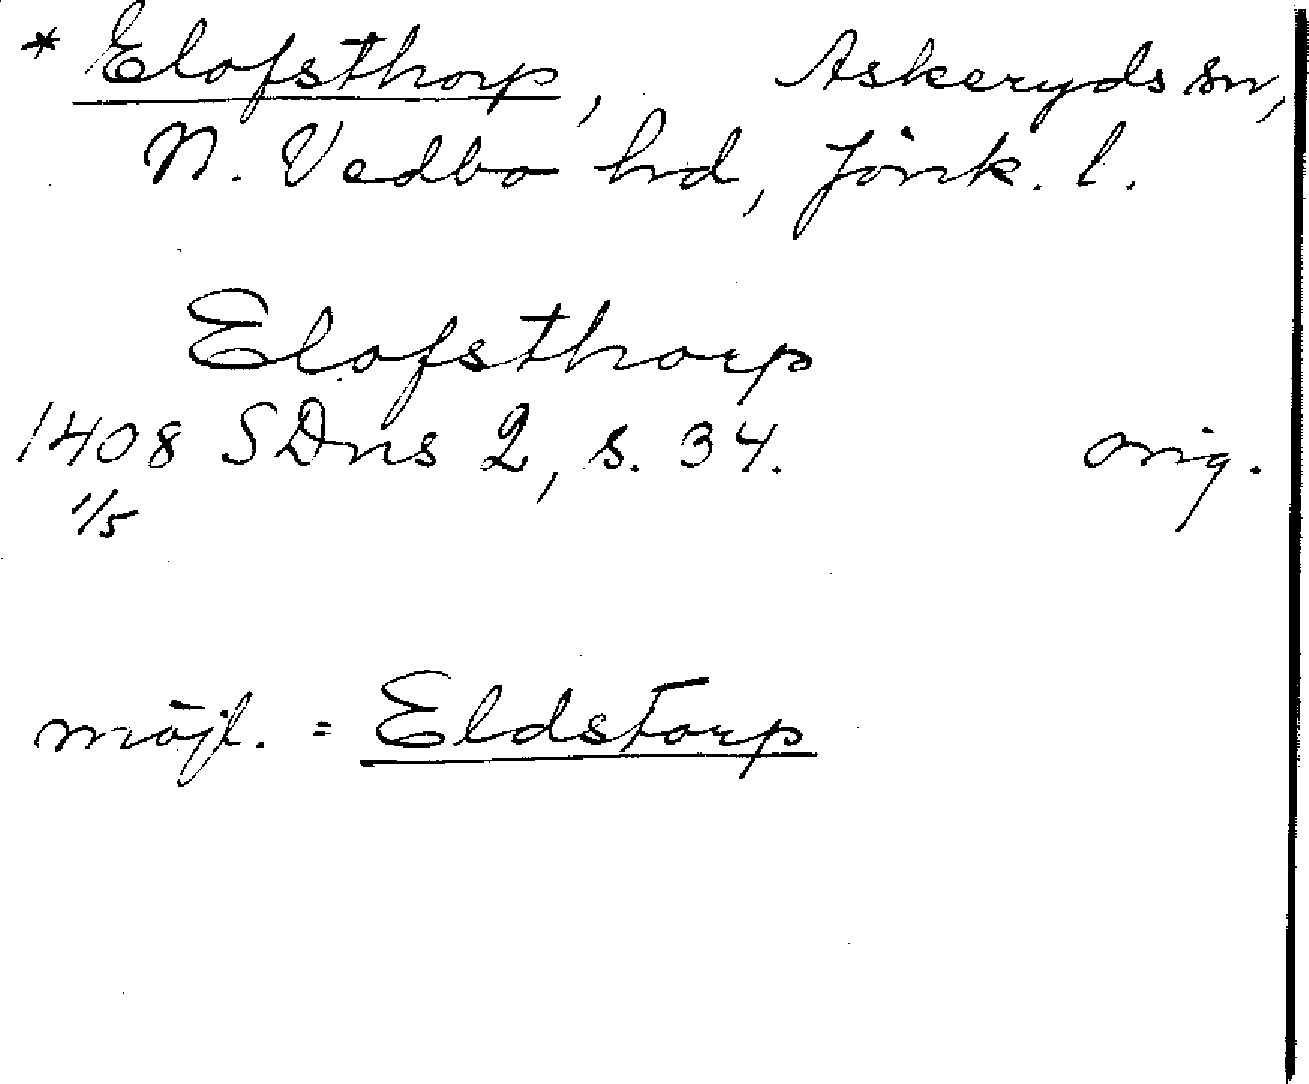 * Elofsthorp, Askeryds sn,
N. Vedbo hd, Jönk. l.
Elofsthorp
1408 SDns 2, s. 34. orig.
1/5
möjl. = Eldstorp